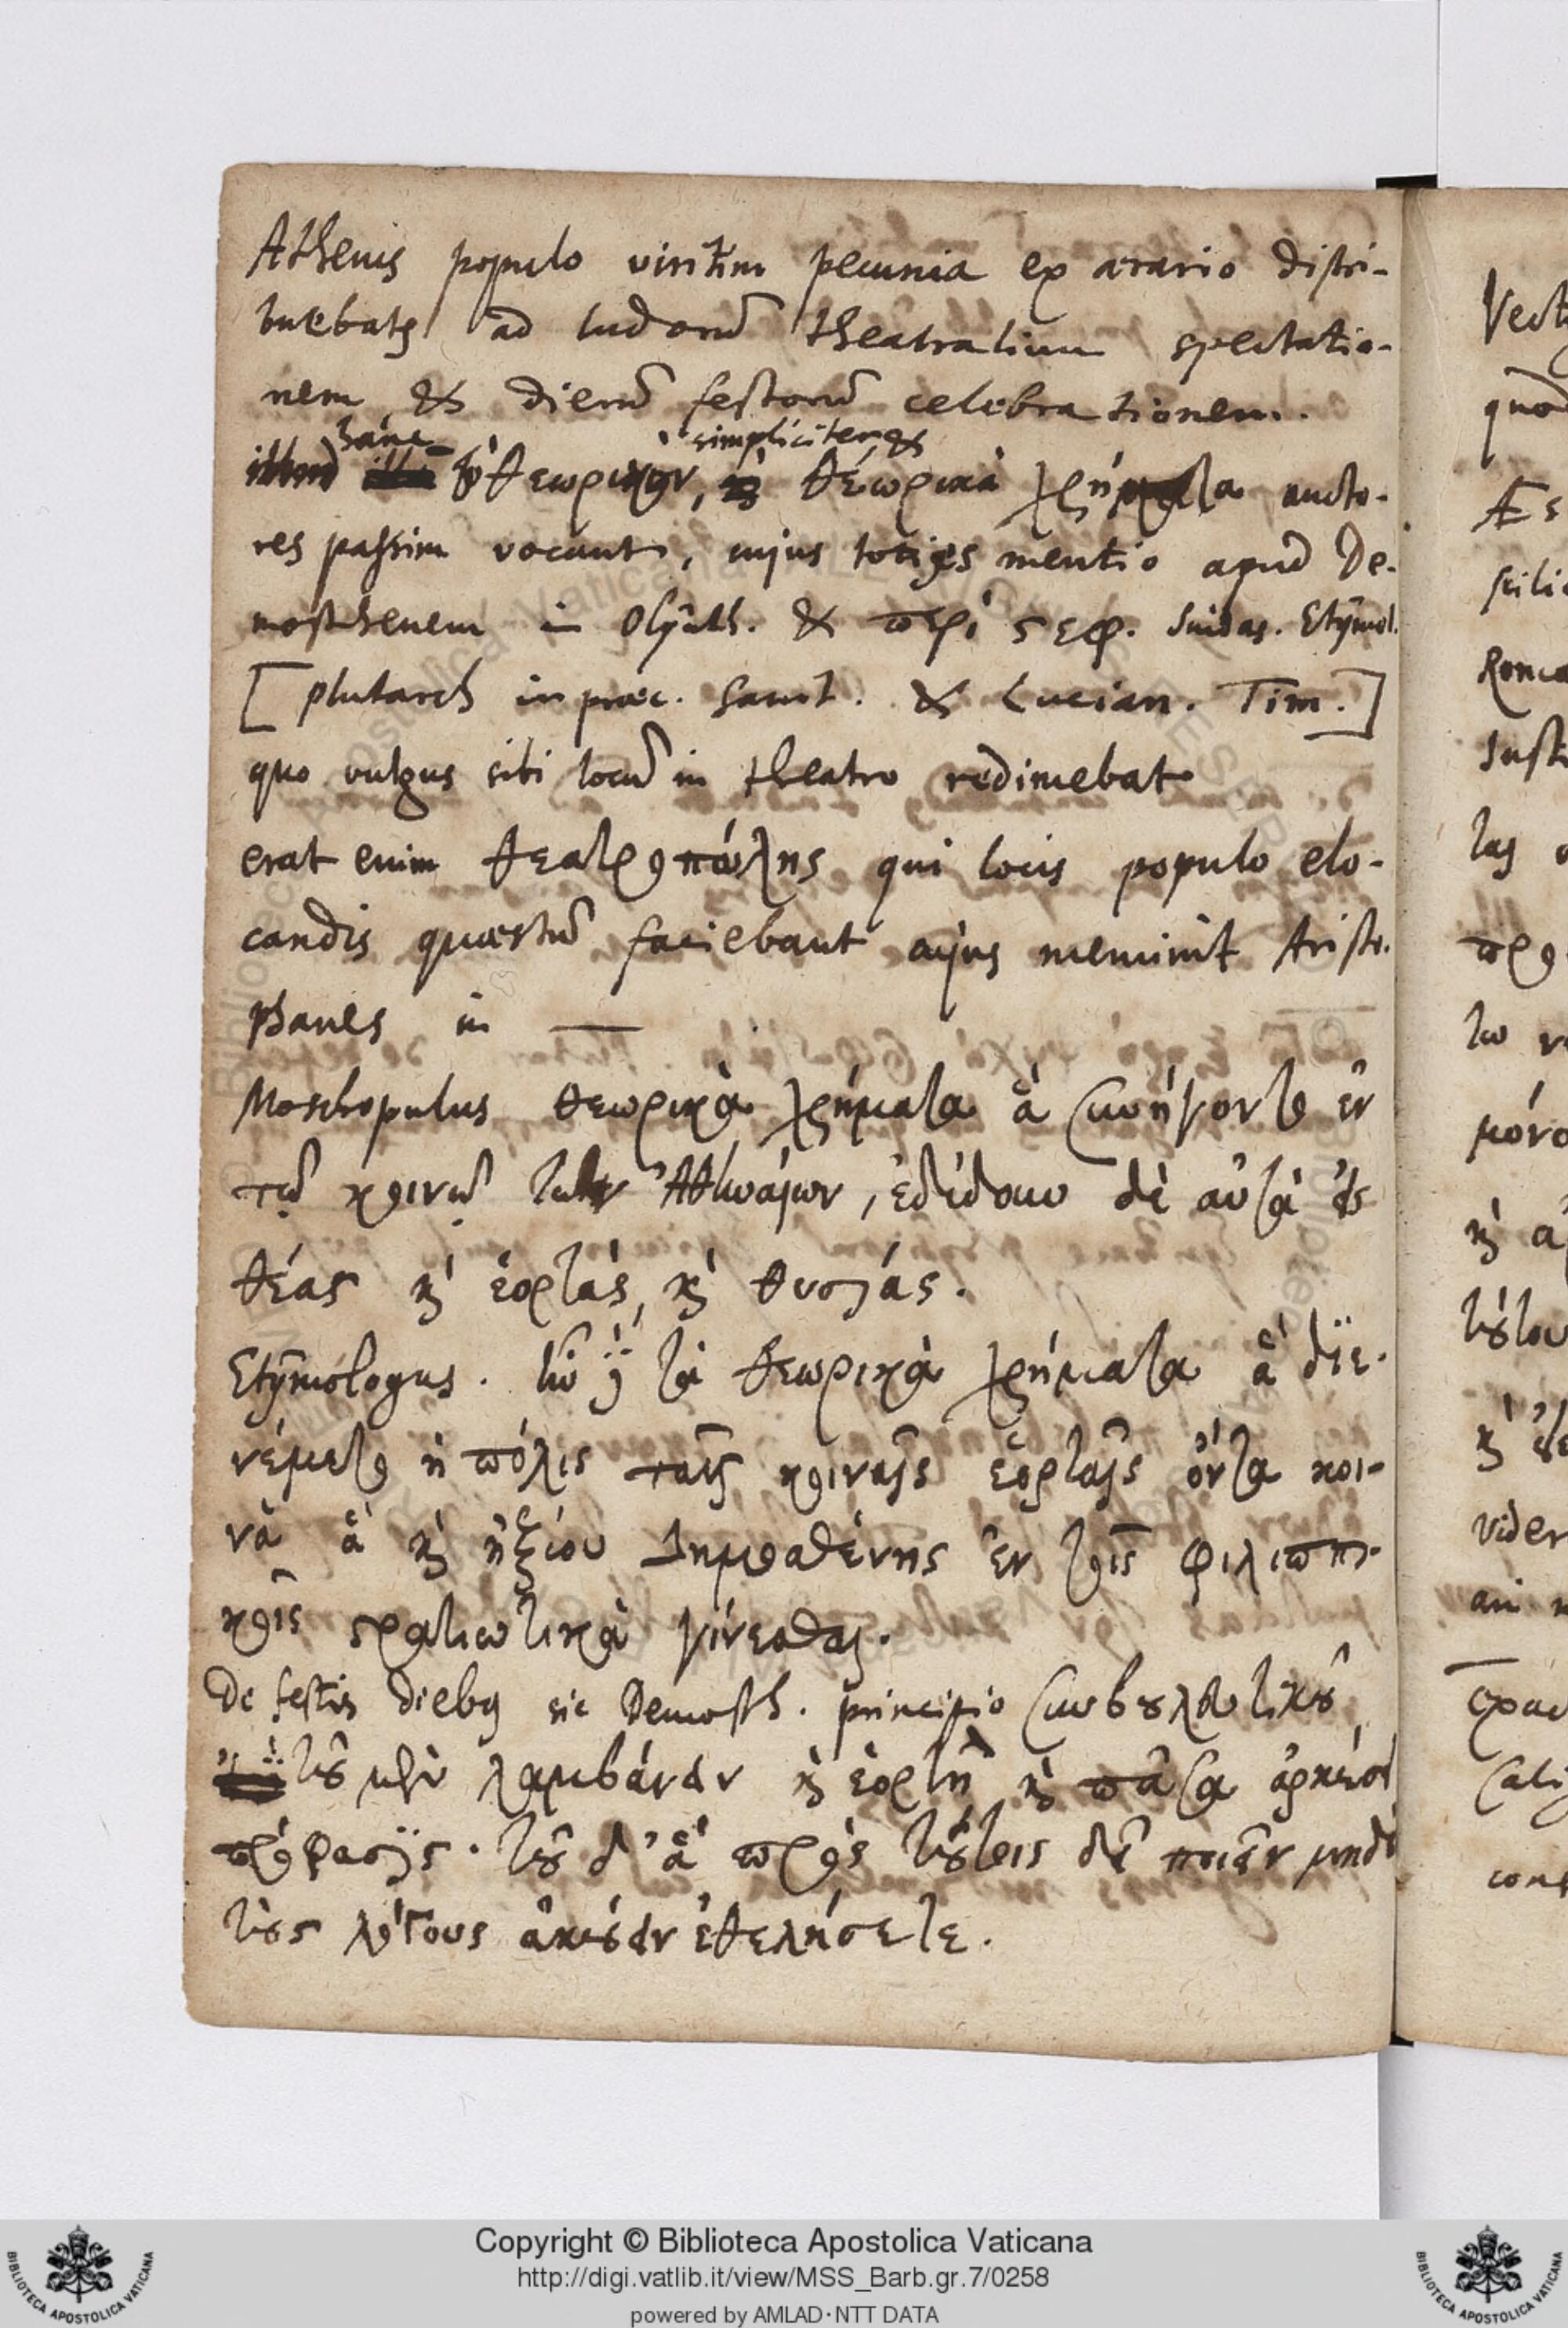 Athenis populo viritim pecunia ex ærario distri-
buebatꝫ ad ludorū theatralium spectatio-
nem & dierū festorū celebrationem.
hanc simpliciter, &
illud τὸ θεωρικὸν, θεωρικὰ χρήματα aucto-
res passim vocant, cujus toties mentio apud De-
mosthenem in Olynth. & περὶ ϛεφ. Suidas. Etymol.
[Plutarch in præc. sanit. & Lucian. Tim.]
quo vulgus sibi locū in theatro redimebat
erat enim θεατροπώλης qui locis populo elo-
candis quæstū faciebant cujus meminit Aristo-
phanes in —
Moschopulus θεωρικὰ χρήματα ἃ συνήγοντο ἐν
τῷ κοινῷ τῶν Ἀθηναίων, ἐδίδουν δὲ αὐτὰ εἰς
θέας καὶ ἑορτάς, καὶ θυσίας.
Etymologus. ἦν τὰ θεωρικὰ χρήματα ἃ διε-
νέμετο ἡ πόλις ταῖς κοιναῖς ἑορταῖς ὄντα κοι-
νὰ ἃ καὶ ἠξίου Δημοσθένης ἐν τοῖς φιλιππι-
κοῖς ϛρατιωτικὰ γίνεσθαι.
De festis diebꝫ sic Demosth. principio συμβουλευτικοῦ
τοῦ μὲν λαμβάνειν καὶ ἑορτὴ καὶ πᾶσα ἀρκέσει
πρόφασις. τοῦ δ’ ἃ πρὸς τούτοις δεῖ ποιεῖν μηδὲ
τοὺς λόγους ἀκούειν ἐθελήσετε.
Copyright © Biblioteca Apostolica Vaticana
http://digi.vatlib.it/view/MSS_Barb.gr.7/0258
powered by AMLAD·NTT DATA